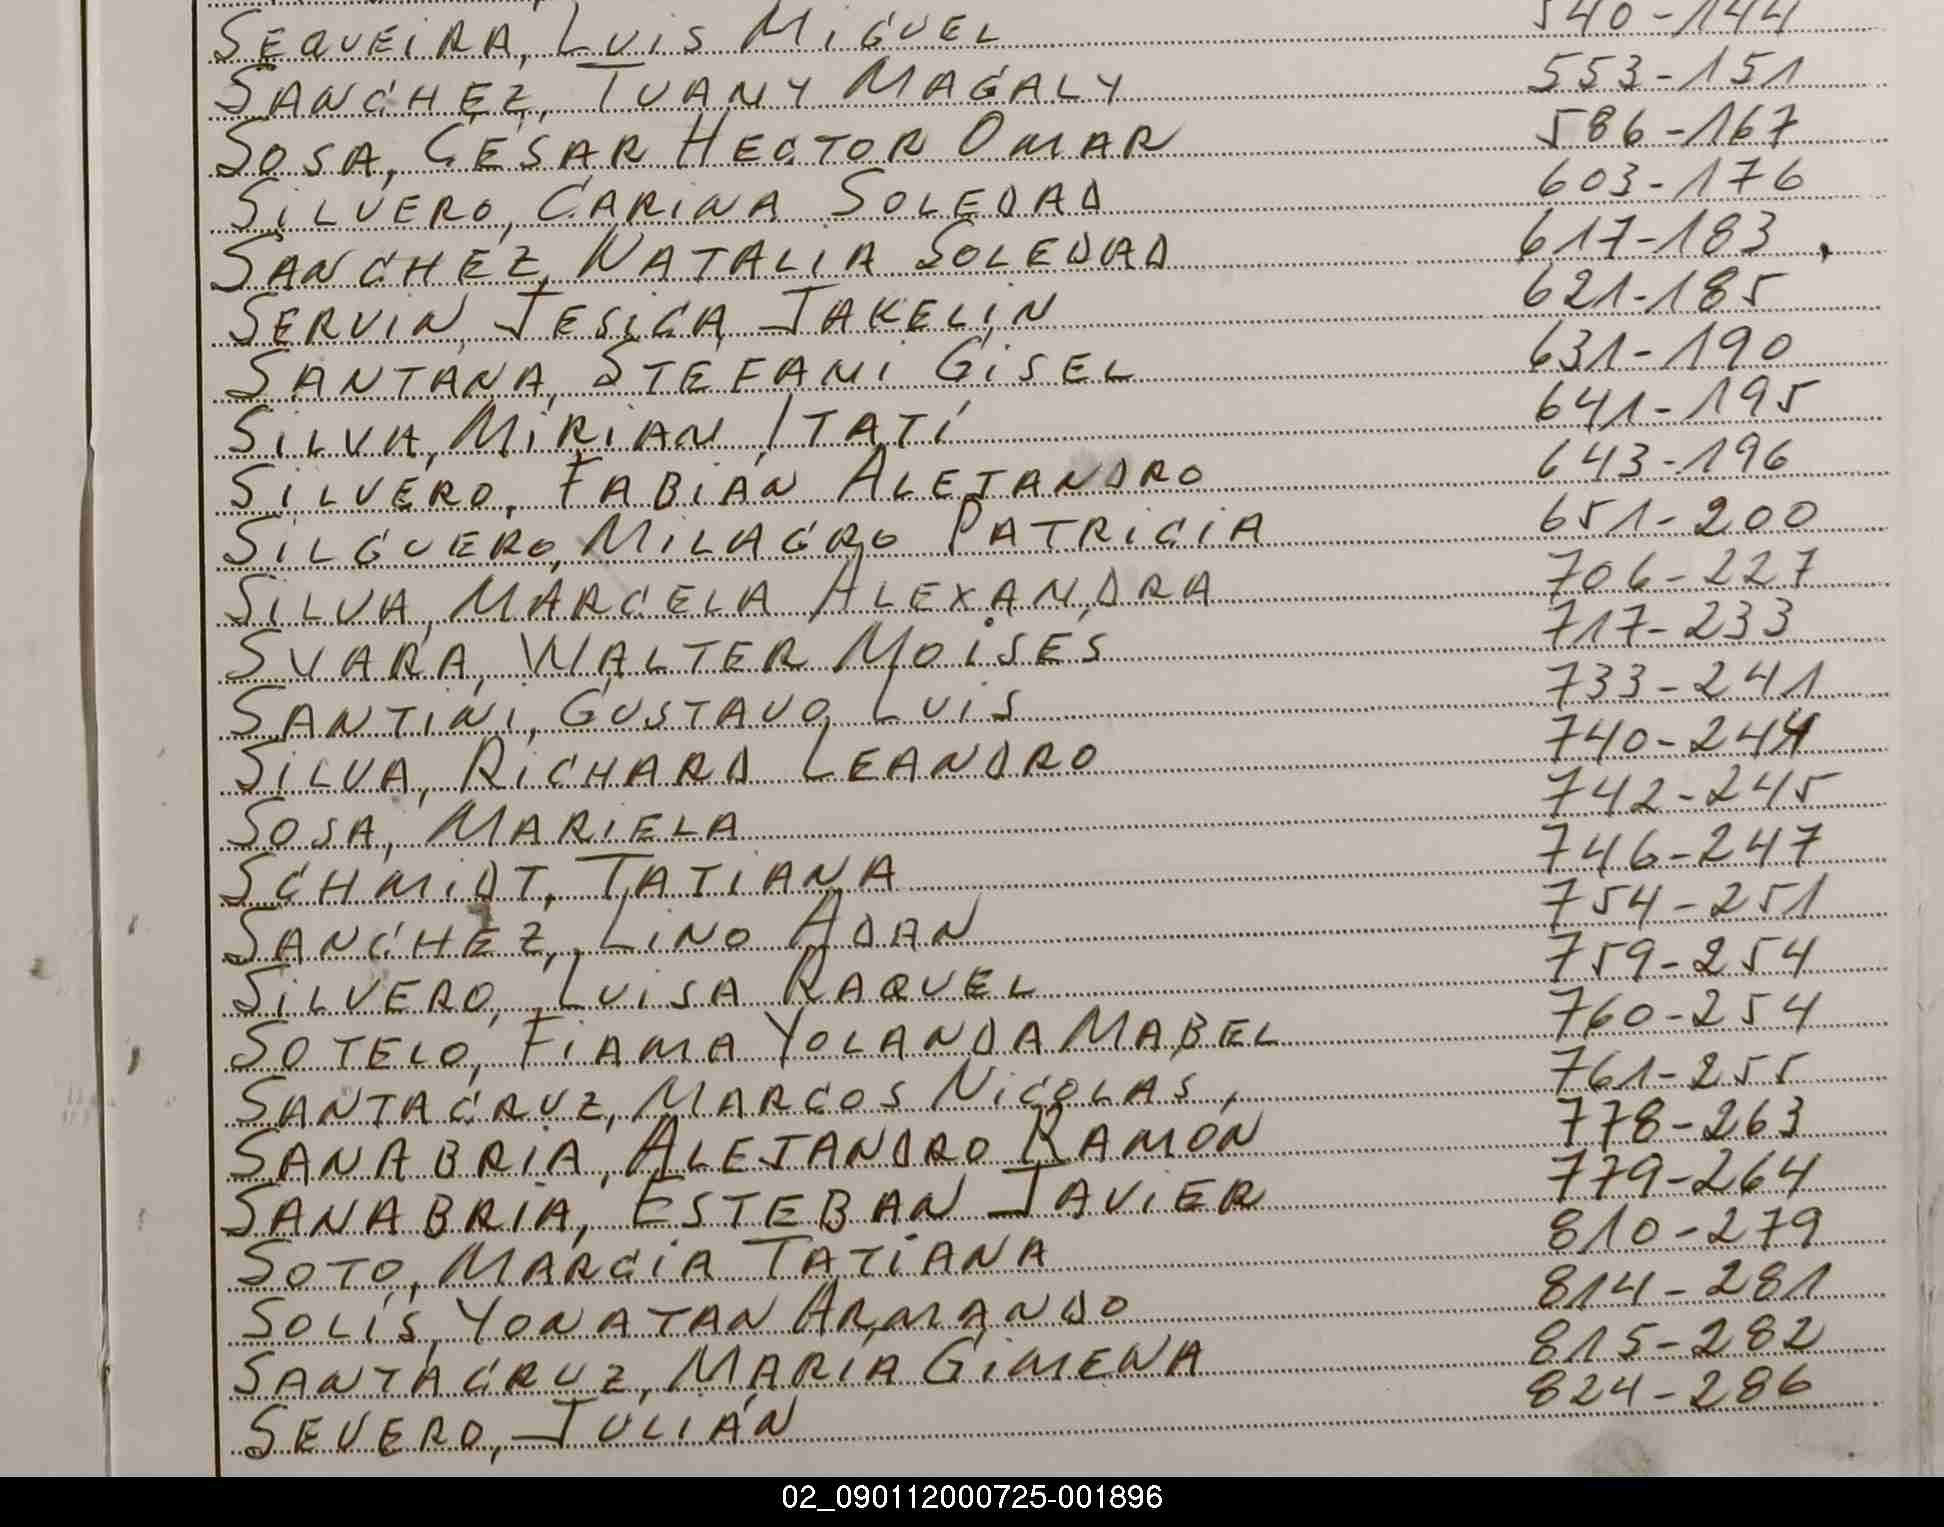 SEQUEIRA, LUIS MIGUEL 540-144
SANCHEZ, IVANY MAGALY 553-151
SOSA, CÉSAR HECTOR OMAR 586-167
SILVERO, CARINA SOLEDAD 603-176
SANCHEZ, NATALIA SOLEDAD 617-183
SERVIN, JESICA JAKELIN 621-185
SANTANA, STEFANI GISEL 631-190
SILVA, MIRIAN ITATÍ 641-195
SILVERO, FABIÁN ALEJANDRO 643-196
SILGUERO, MILAGRO PATRICIA 651-200
SILVA, MARCELA ALEXANDRA 706-227
SVARA, WALTER MOISÉS 717-233
SANTINI, GUSTAVO LUIS 733-241
SILVA, RICHARD LEANDRO 740-244
SOSA, MARIELA 742-245
SCHMIDT, TATIANA 746-247
SANCHEZ, LINO ADAN 754-251
SILVERO, LUISA RAQUEL 759-254
SOTELO, FIAMA YOLANDA MABEL 760-254
SANTACRUZ, MARCOS NICOLAS 761-255
SANABRIA, ALEJANDRO RAMÓN 778-263
SANABRIA, ESTEBAN JAVIER 779-264
SOTO, MARCIA TATIANA 810-279
SOLÍS, YONATAN ARMANDO 814-281
SANTACRUZ, MARÍA GIMENA 815-282
SEVERO, JULIÁN 824-286
02_090112000725-001896